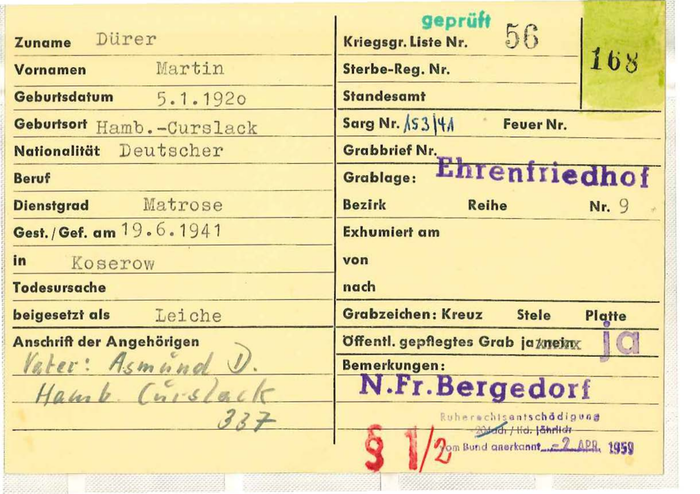 Zuname Dürer
Vornamen Martin
Geburtsdatum 5.1.1920
Geburtsort Hamb.-Curslack
Nationalität Deutscher
Beruf
Dienstgrad Matrose
Gest./Gef. am 19.6.1941
in Koserow
Todesursache
beigesetzt als Leiche
Anschrift der Angehörigen
Vater: Asmund D.
Hamb. Curslack
337
geprüft
Kriegsgr. Liste Nr. 56
168
Sterbe-Reg. Nr.
Standesamt
Sarg Nr. 153/41 Feuer Nr.
Grabbrief Nr.
Grablage: Ehrenfriedhof
Bezirk Reihe Nr. 9
Exhumiert am
von
nach
Grabzeichen: Kreuz Stele Platte
Öffentl. gepflegtes Grab ja/nein ja
Bemerkungen:
N.Fr.Bergedorf
Ruherechtsentschädigung
/ lfd. jährlich
§ 1/2 vom Bund anerkannt -2. APR. 1959